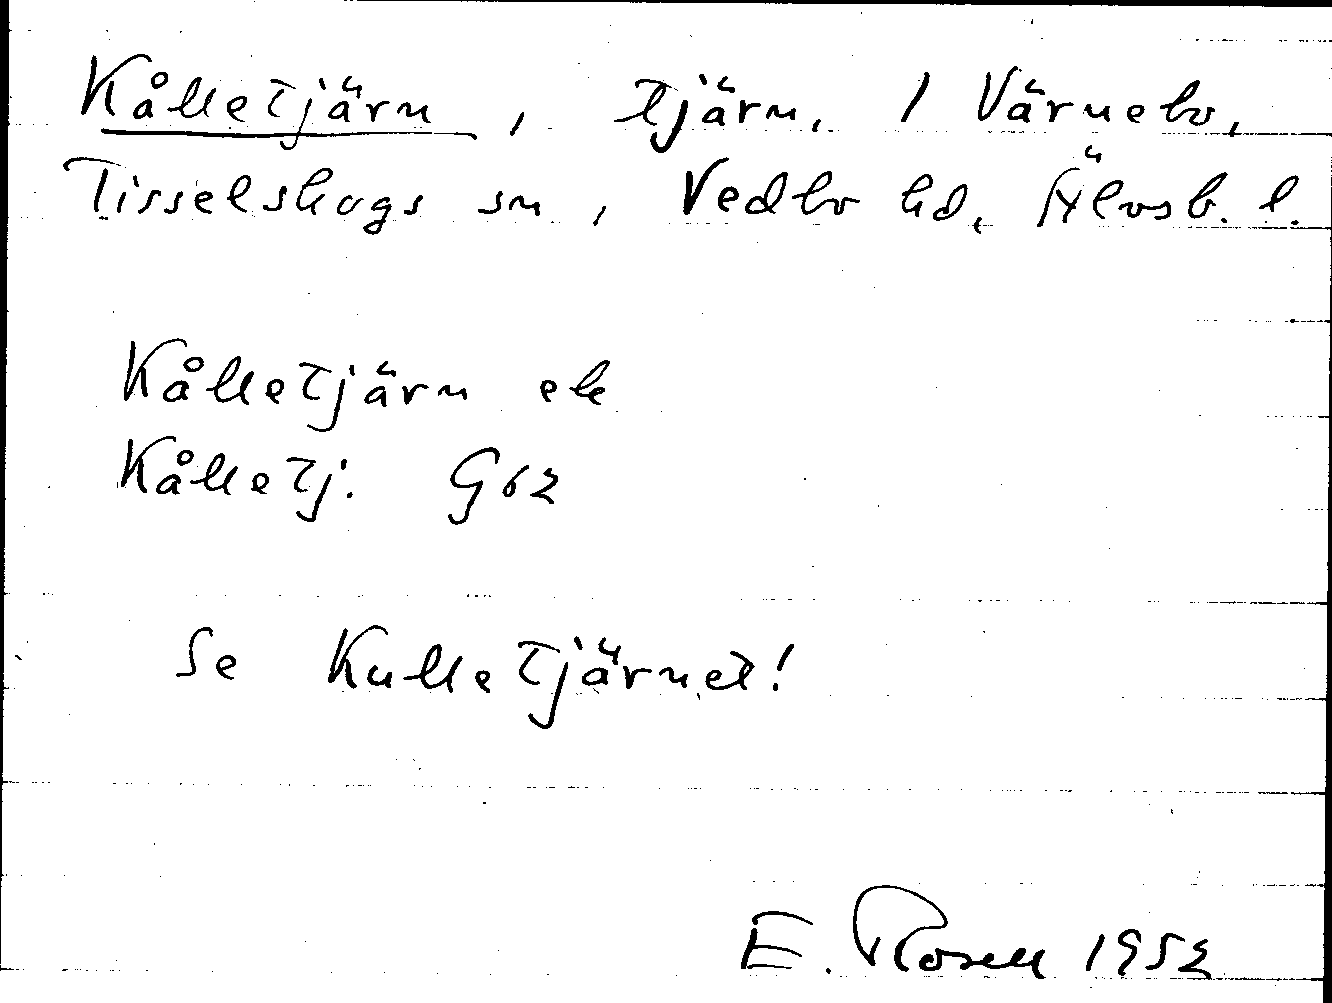 Kålletjärn, tjärn. 1 Värnebo,
Tisselskogs sn, Vedbo hd, Älvsb. l.
Kålletjärn ek
Kålletj. G62
Se Kulletjärnet!
E. Rosell 1952